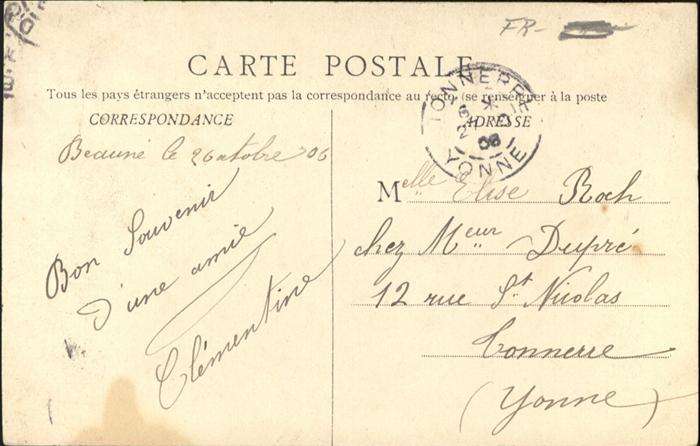 FR-
CARTE POSTALE
Tous les pays étrangers n'acceptent pas la correspondance au recto (se renseigner à la poste
CORRESPONDANCE
ADRESSE
TONNERRE
YONNE
06
Beaune le 2 octobre 06
Bon Souvenir
d'une amie
Clémentine
Melle Elise Roch
chez Meur Dupré
12 rue St Nicolas
Tonnerre
(Yonne)